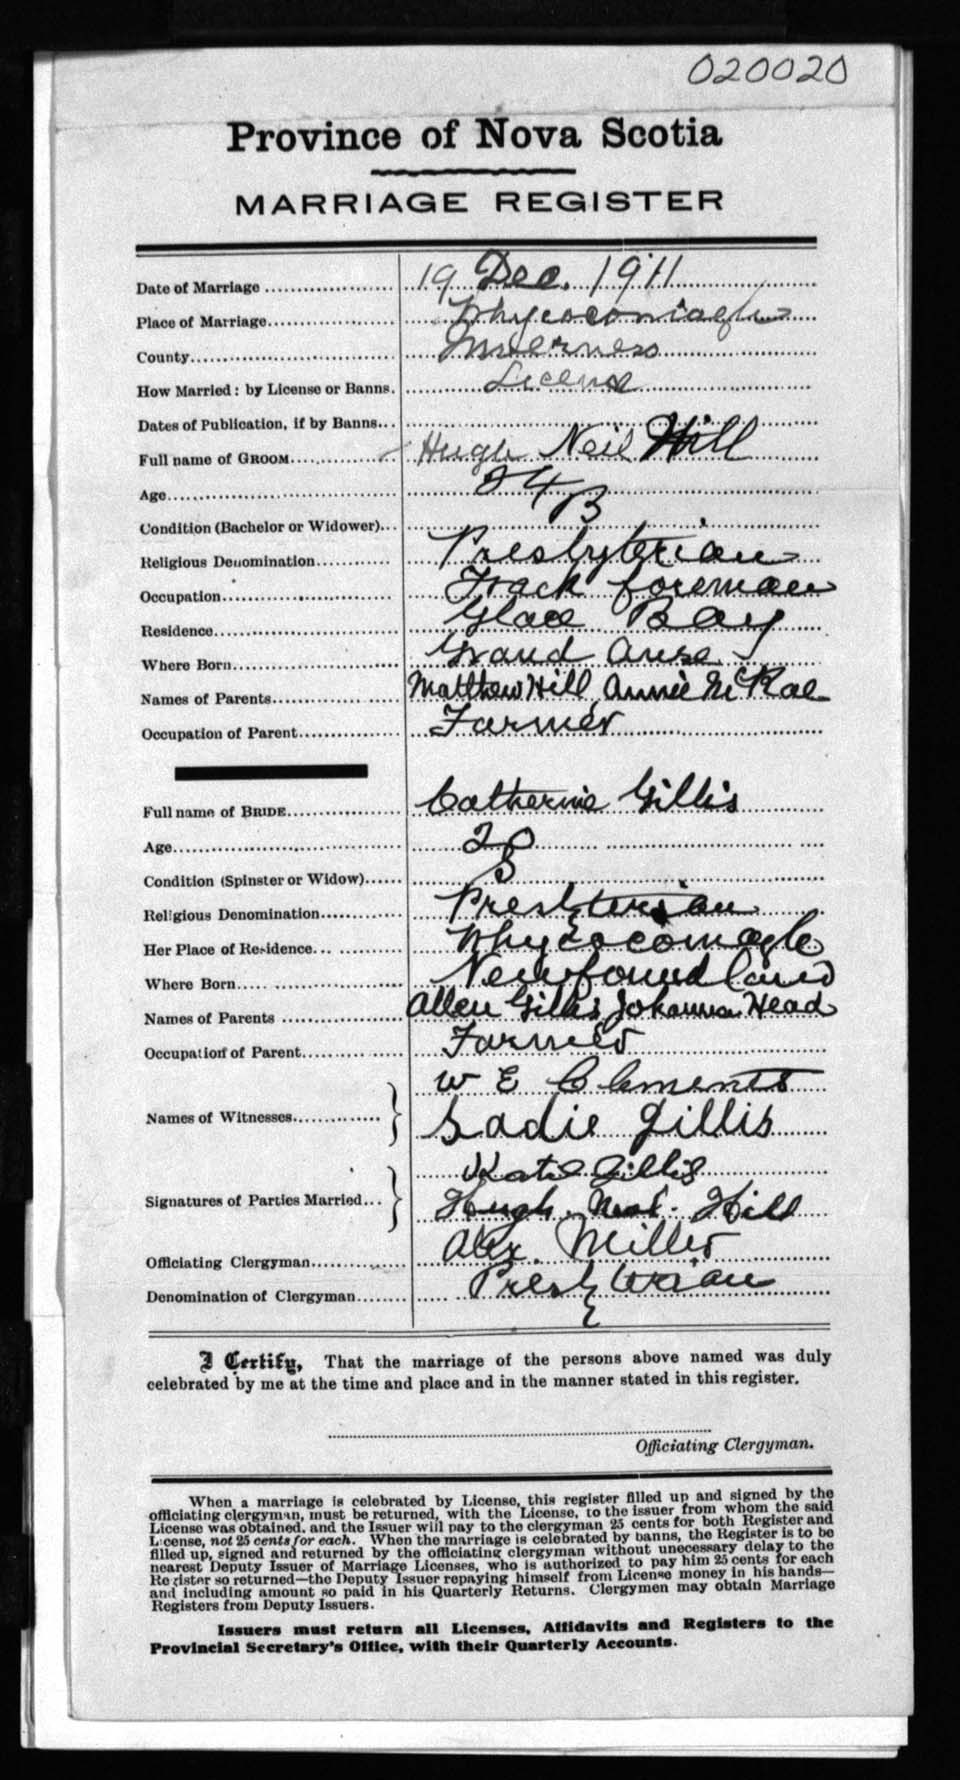 020020
Province of Nova Scotia
MARRIAGE REGISTER
Date of Marriage 19 Dec. 1911
Place of Marriage Whycocomagh
County Inverness
How Married: by License or Banns. License
Dates of Publication, if by Banns
Full name of GROOM Hugh Neil Hill
Age 24
Condition (Bachelor or Widower) B
Religious Denomination Presbyterian
Occupation Track foreman
Residence Glace Bay
Where Born Grand Anse
Names of Parents Matthew Hill Annie McRae
Occupation of Parent Farmer
Full name of BRIDE Catherine Gillis
Age 20
Condition (Spinster or Widow) S
Religious Denomination Presbyterian
Her Place of Residence Whycocomagh
Where Born Newfoundland
Names of Parents Allen Gillis Johanna Head
Occupation of Parent Farmer
Names of Witnesses W E Clements
Sadie Gillis
Signatures of Parties Married Katie Gillis
Hugh Neil Hill
Officiating Clergyman Alex. Miller
Denomination of Clergyman Presbyterian
I Certify, That the marriage of the persons above named was duly
celebrated by me at the time and place and in the manner stated in this register.
Officiating Clergyman.
When a marriage is celebrated by License, this register filled up and signed by the
officiating clergyman, must be returned, with the License, to the issuer from whom the said
License was obtained, and the Issuer will pay to the clergyman 25 cents for both Register and
License, not 25 cents for each. When the marriage is celebrated by banns, the Register is to be
filled up, signed and returned by the officiating clergyman without unecessary delay to the
nearest Deputy Issuer of Marriage Licenses, who is authorized to pay him 25 cents for each
Register so returned—the Deputy Issuer repaying himself from License money in his hands—
and including amount so paid in his Quarterly Returns. Clergymen may obtain Marriage
Registers from Deputy Issuers.
Issuers must return all Licenses, Affidavits and Registers to the
Provincial Secretary's Office, with their Quarterly Accounts.